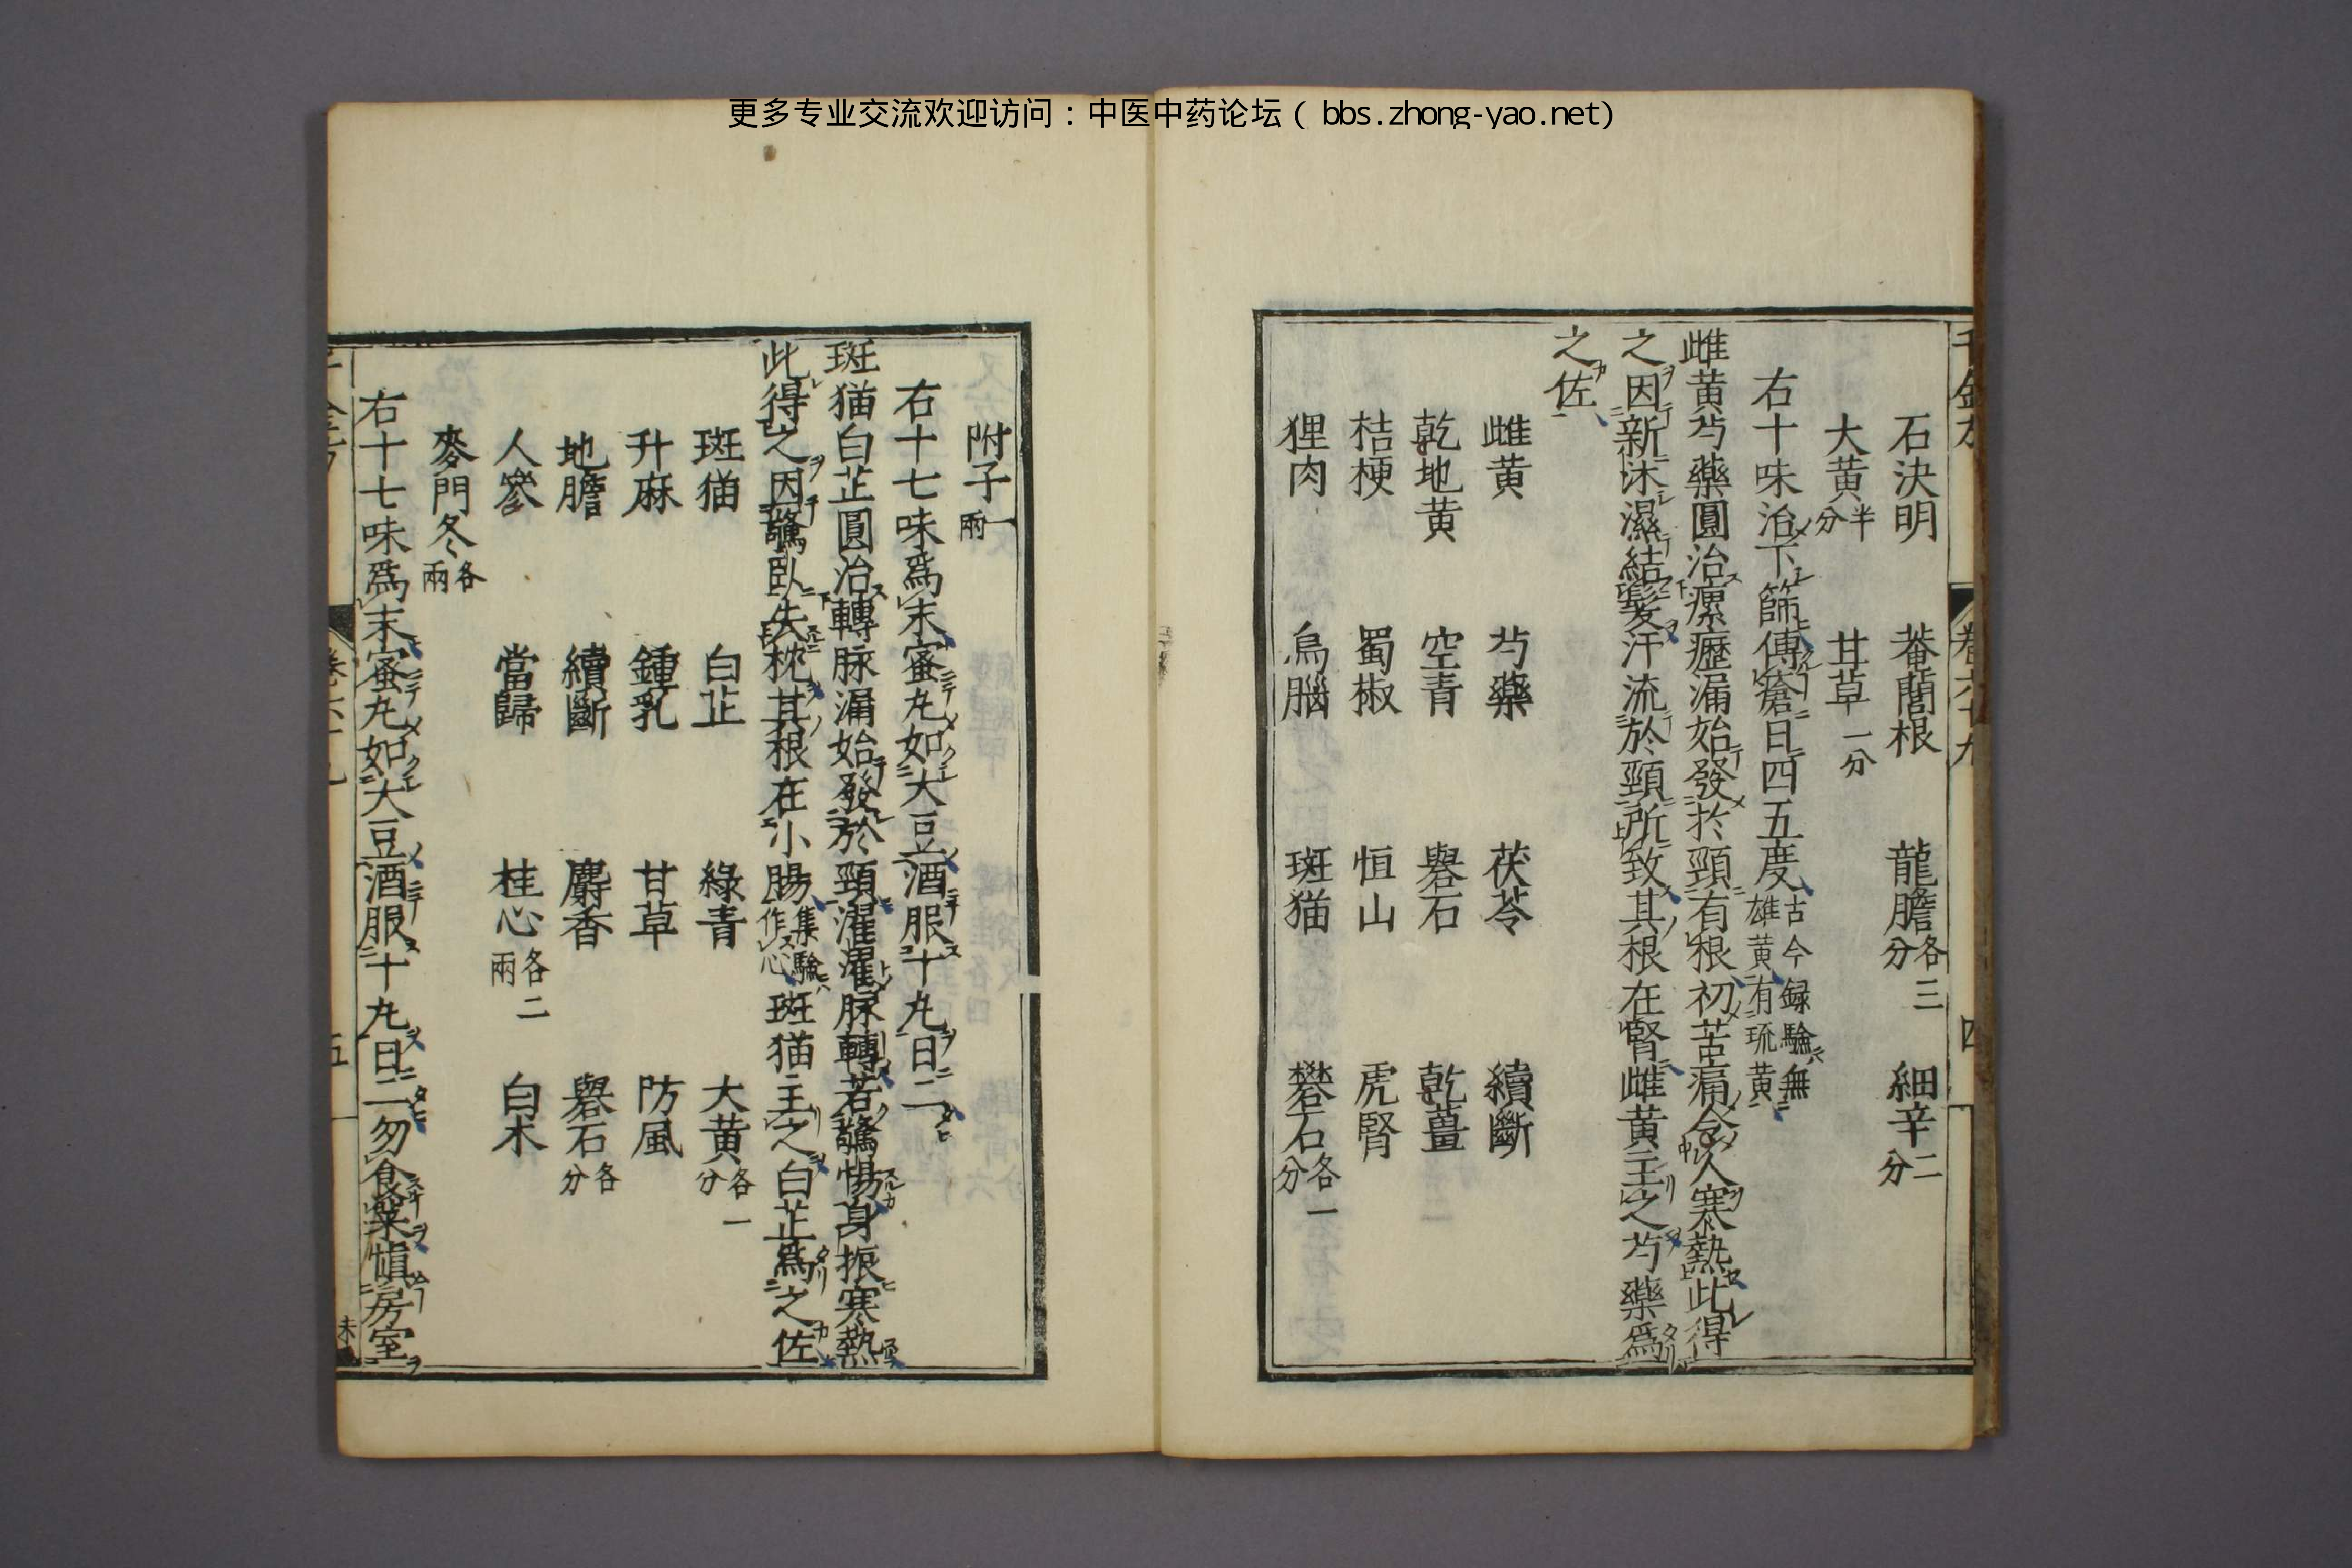 更多专业交流欢迎访问：中医中药论坛（ bbs.zhong-yao.net）
石決明　菴䕡根　龍膽各三分　細辛二分
大黄半分　甘草一分
右十味治下篩傅瘡日四五度古今録驗無雄黄有琉黄
雌黄芍藥圓治瘰癧漏始發於頸有根初苦痛令人寒熱此得
之因新沐濕結髪汗流於頸所致其根在腎雌黄主之芍藥爲
之佐
雌黄　芍藥　茯苓　續斷
乾地黄　空青　礜石　乾薑
桔梗　蜀椒　恒山　虎腎
狸肉　烏腦　斑猫　礬石各一分
附子一兩
右十七味爲末蜜丸如大豆酒服十丸日二
斑猫白芷圓治轉脉漏始發於頸濯濯脉轉若驚惕身振寒熱
此得之因驚臥失枕其根在小腸集驗作心斑猫主之白芷爲之佐
斑猫　白芷　綠青　大黄各一分
升麻　鍾乳　甘草　防風
地膽　續斷　麝香　礜石各分
人參　當歸　桂心各二兩　白术
麥門冬各兩
右十七味爲末蜜丸如大豆酒服十丸日二勿食菜愼房室
五